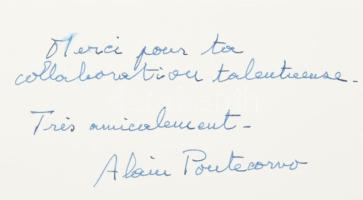 Merci pour ta
collaboration talentueuse.
Très amicalement.
Alain Pontecorvo